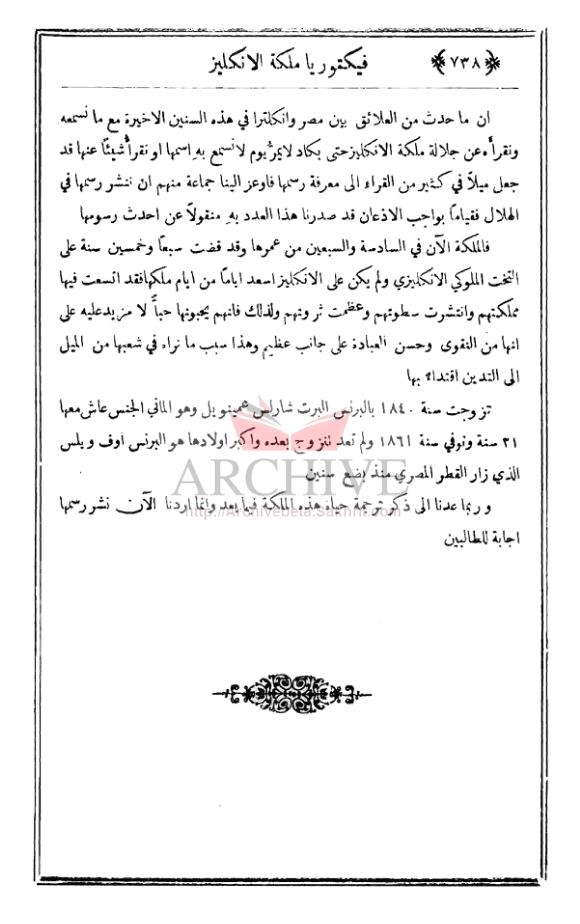 ﴿٧٣٨﴾ فيكتوريا ملكة الانكليز
ان ما حدث من العلائق بين مصر وانكلترا في هذه السنين الاخيرة مع ما نسمعه
ونقرأه عن جلالة ملكة الانكليز حتى يكاد لا يمرُّ يوم لا نسمع بهِ اسمها او نقرأُ شيئًا عنها قد
جعل ميلاً في كثير من القراء الى معرفة رسمها فاوعز الينا جماعة منهم ان ننشر رسمها في
الهلال فقيامًا بواجب الاذعان قد صدرنا هذا العدد بهِ منقولاً عن احدث رسومها
فالملكة الآن في السادسة والسبعين من عمرها وقد قضت سبعًا وخمسين سنة على
التخت الملوكي الانكليزي ولم يكن على الانكليز اسعد ايامًا من ايام ملكها فقد اتسعت فيها
مملكتهم وانتشرت سطوتهم وعظمت ثروتهم ولذلك فانهم يحبونها حبًّا لا مزيد عليه على
انها من التقوى وحسن العبادة على جانب عظيم وهذا سبب ما نراه في شعبها من الميل
الى التدين اقتداءً بها
تزوجت سنة ١٨٤٠ بالبرنس البرت شارلس عمينويل وهو الماني الجنس عاش معها
٢١ سنة وتوفي سنة ١٨٦١ ولم تعد تتزوج بعده واكبر اولادها هو البرنس اوف ويلس
الذي زار القطر المصري منذ بضع سنين
وربما عدنا الى ذكر ترجمة حياة هذه الملكة فيما بعد وانما اردنا الآن نشر رسمها
اجابة للطالبين
ARCHIVE
http://Archivebeta.Sakhrit.com